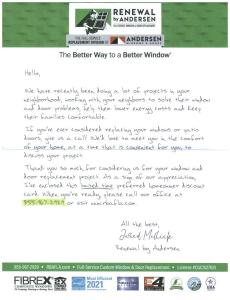 RENEWAL
by ANDERSEN
FULL-SERVICE WINDOW & DOOR REPLACEMENT
THE FULL-SERVICE
REPLACEMENT DIVISION OF
ANDERSEN
WINDOWS & DOORS
The Better Way to a Better Window®
Hello,
We have recently been doing a lot of projects in your
neighborhood, working with your neighbors to solve their window
and door problems, help them lower energy costs and keep
their families comfortable.
If you've ever considered replacing your windows or patio
doors, give us a call. We'd love to meet you in the comfort
of your home, at a time that is convenient for you to
discuss your project.
Thank you so much for considering us for your window and
door replacement project. As a sign of our appreciation,
I've enclosed this limited time preferred homeowner discount
card. When you're ready, please call our office at
or visit
All the best,
Renewal by Andersen
RBAFLA.com • Full-Service Custom Window & Door Replacement
FIBREX
Most Efficient
2021